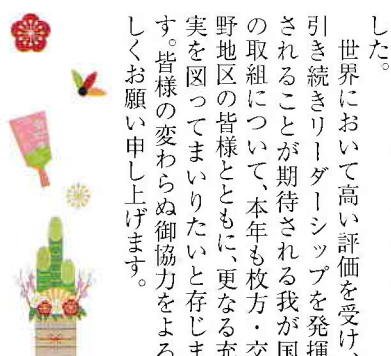 した。
世界において高い評価を受け、
引き続きリーダーシップを発揮
されることが期待される我が国
の取組について、本年も枚方・交
野地区の皆様とともに、更なる充
実を図ってまいりたいと存じま
す。皆様の変わらぬ御協力をよろ
しくお願い申し上げます。